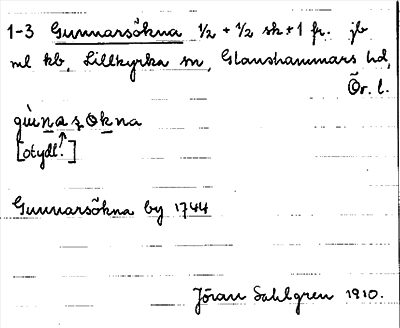 1-3 Gunnarsökna 1/2 + 1/2 sk + 1 fr. jb
ml kb, Lillkyrka sn, Glanshammars hd,
Ör. l.
gùnaṣokna
[otydl.?]
Gunnarsökna by 1744
Jöran Sahlgren 1910.